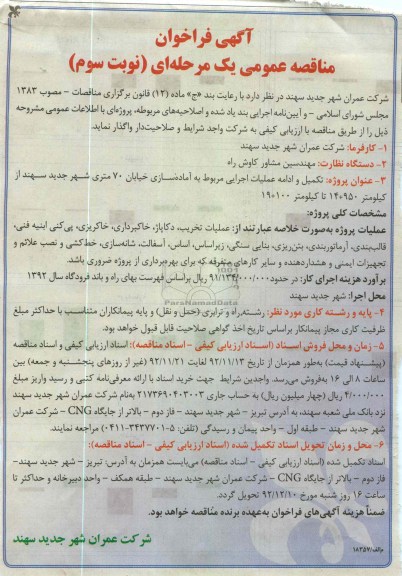 آگهی فراخوان
مناقصه عمومی یک مرحله‌ای (نوبت سوم)
شرکت عمران شهر جدید سهند در نظر دارد با رعایت بند «ج» ماده (۱۲) قانون برگزاری مناقصات - مصوب ۱۳۸۳
مجلس شورای اسلامی - و آیین‌نامه اجرایی بند یاد شده و اصلاحیه‌های مربوطه، پروژه‌ای با اطلاعات عمومی مشروحه
ذیل را از طریق مناقصه با ارزیابی کیفی به شرکت واجد شرایط و صلاحیت‌دار واگذار نماید.
۱- کارفرما: شرکت عمران شهر جدید سهند
۲- دستگاه نظارت: مهندسین مشاور کاوش راه
۳- عنوان پروژه: تکمیل و ادامه عملیات اجرایی مربوط به آماده‌سازی خیابان ۷۰ متری شهر جدید سهند از
کیلومتر ۱۴۰۹۵۰ تا کیلومتر ۱۹۰۱۰۰
مشخصات کلی پروژه:
عملیات پروژه به‌صورت خلاصه عبارتند از: عملیات تخریب، دکاپاژ، خاکبرداری، خاکریزی، پی‌کنی ابنیه فنی،
قالب‌بندی، آرماتوربندی، بتن‌ریزی، بنایی سنگی، زیراساس، اساس، آسفالت، شانه‌سازی، خط‌کشی و نصب علائم و
تجهیزات ایمنی و هشداردهنده و سایر کارهای متفرقه که برای بهره‌برداری از پروژه ضروری باشد.
برآورد هزینه اجرای کار: در حدود ۹۱/۱۳۴/۰۰۰/۰۰۰ ریال براساس فهرست بهای راه و باند فرودگاه سال ۱۳۹۲
محل اجرا: شهر جدید سهند
۴- پایه و رشته کاری مورد نظر: رشته‌راه و ترابری (حمل و نقل) و پایه پیمانکاران متناسب با حداکثر مبلغ
ظرفیت کاری مجاز پیمانکار براساس تاریخ اخذ گواهی صلاحیت قابل قبول خواهد بود.
۵- زمان و محل فروش اسناد (اسناد ارزیابی کیفی - اسناد مناقصه): اسناد ارزیابی کیفی و اسناد مناقصه
(پیشنهاد قیمت) به‌طور همزمان از تاریخ ۹۲/۱۱/۱۳ لغایت ۹۲/۱۱/۲۱ (غیر از روزهای پنجشنبه و جمعه) بین
ساعات ۸ الی ۱۶ به‌فروش می‌رسد. واجدین شرایط جهت خرید اسناد با ارائه معرفی‌نامه کتبی و رسید واریز مبلغ
۴/۰۰۰/۰۰۰ ریال (چهار میلیون ریال) به حساب جاری ۲۱۷۳۶۹۰۴۰۳۰۰۳ به‌نام شرکت عمران شهر جدید سهند
نزد بانک ملی شعبه سهند، به آدرس تبریز - شهر جدید سهند - فاز دوم - بالاتر از جایگاه CNG - شرکت عمران
شهر جدید سهند - طبقه اول - واحد پیمان و رسیدگی (تلفن: ۵-۳۴۳۷۷۰۱-۰۴۱۱) مراجعه نمایند.
۶- محل و زمان تحویل اسناد تکمیل شده (اسناد ارزیابی کیفی - اسناد مناقصه):
اسناد تکمیل شده (اسناد ارزیابی کیفی - اسناد مناقصه) می‌بایست همزمان به آدرس: تبریز - شهر جدید سهند -
فاز دوم - بالاتر از جایگاه CNG - شرکت عمران شهر جدید سهند - طبقه همکف - واحد دبیرخانه و حداکثر تا
ساعت ۱۶ روز شنبه مورخ ۹۲/۱۲/۱۰ تحویل گردد.
ضمناً هزینه آگهی‌های فراخوان به‌عهده برنده مناقصه خواهد بود.
شرکت عمران شهر جدید سهند
م/الف/۱۸۲۵۷
ParsNamadData